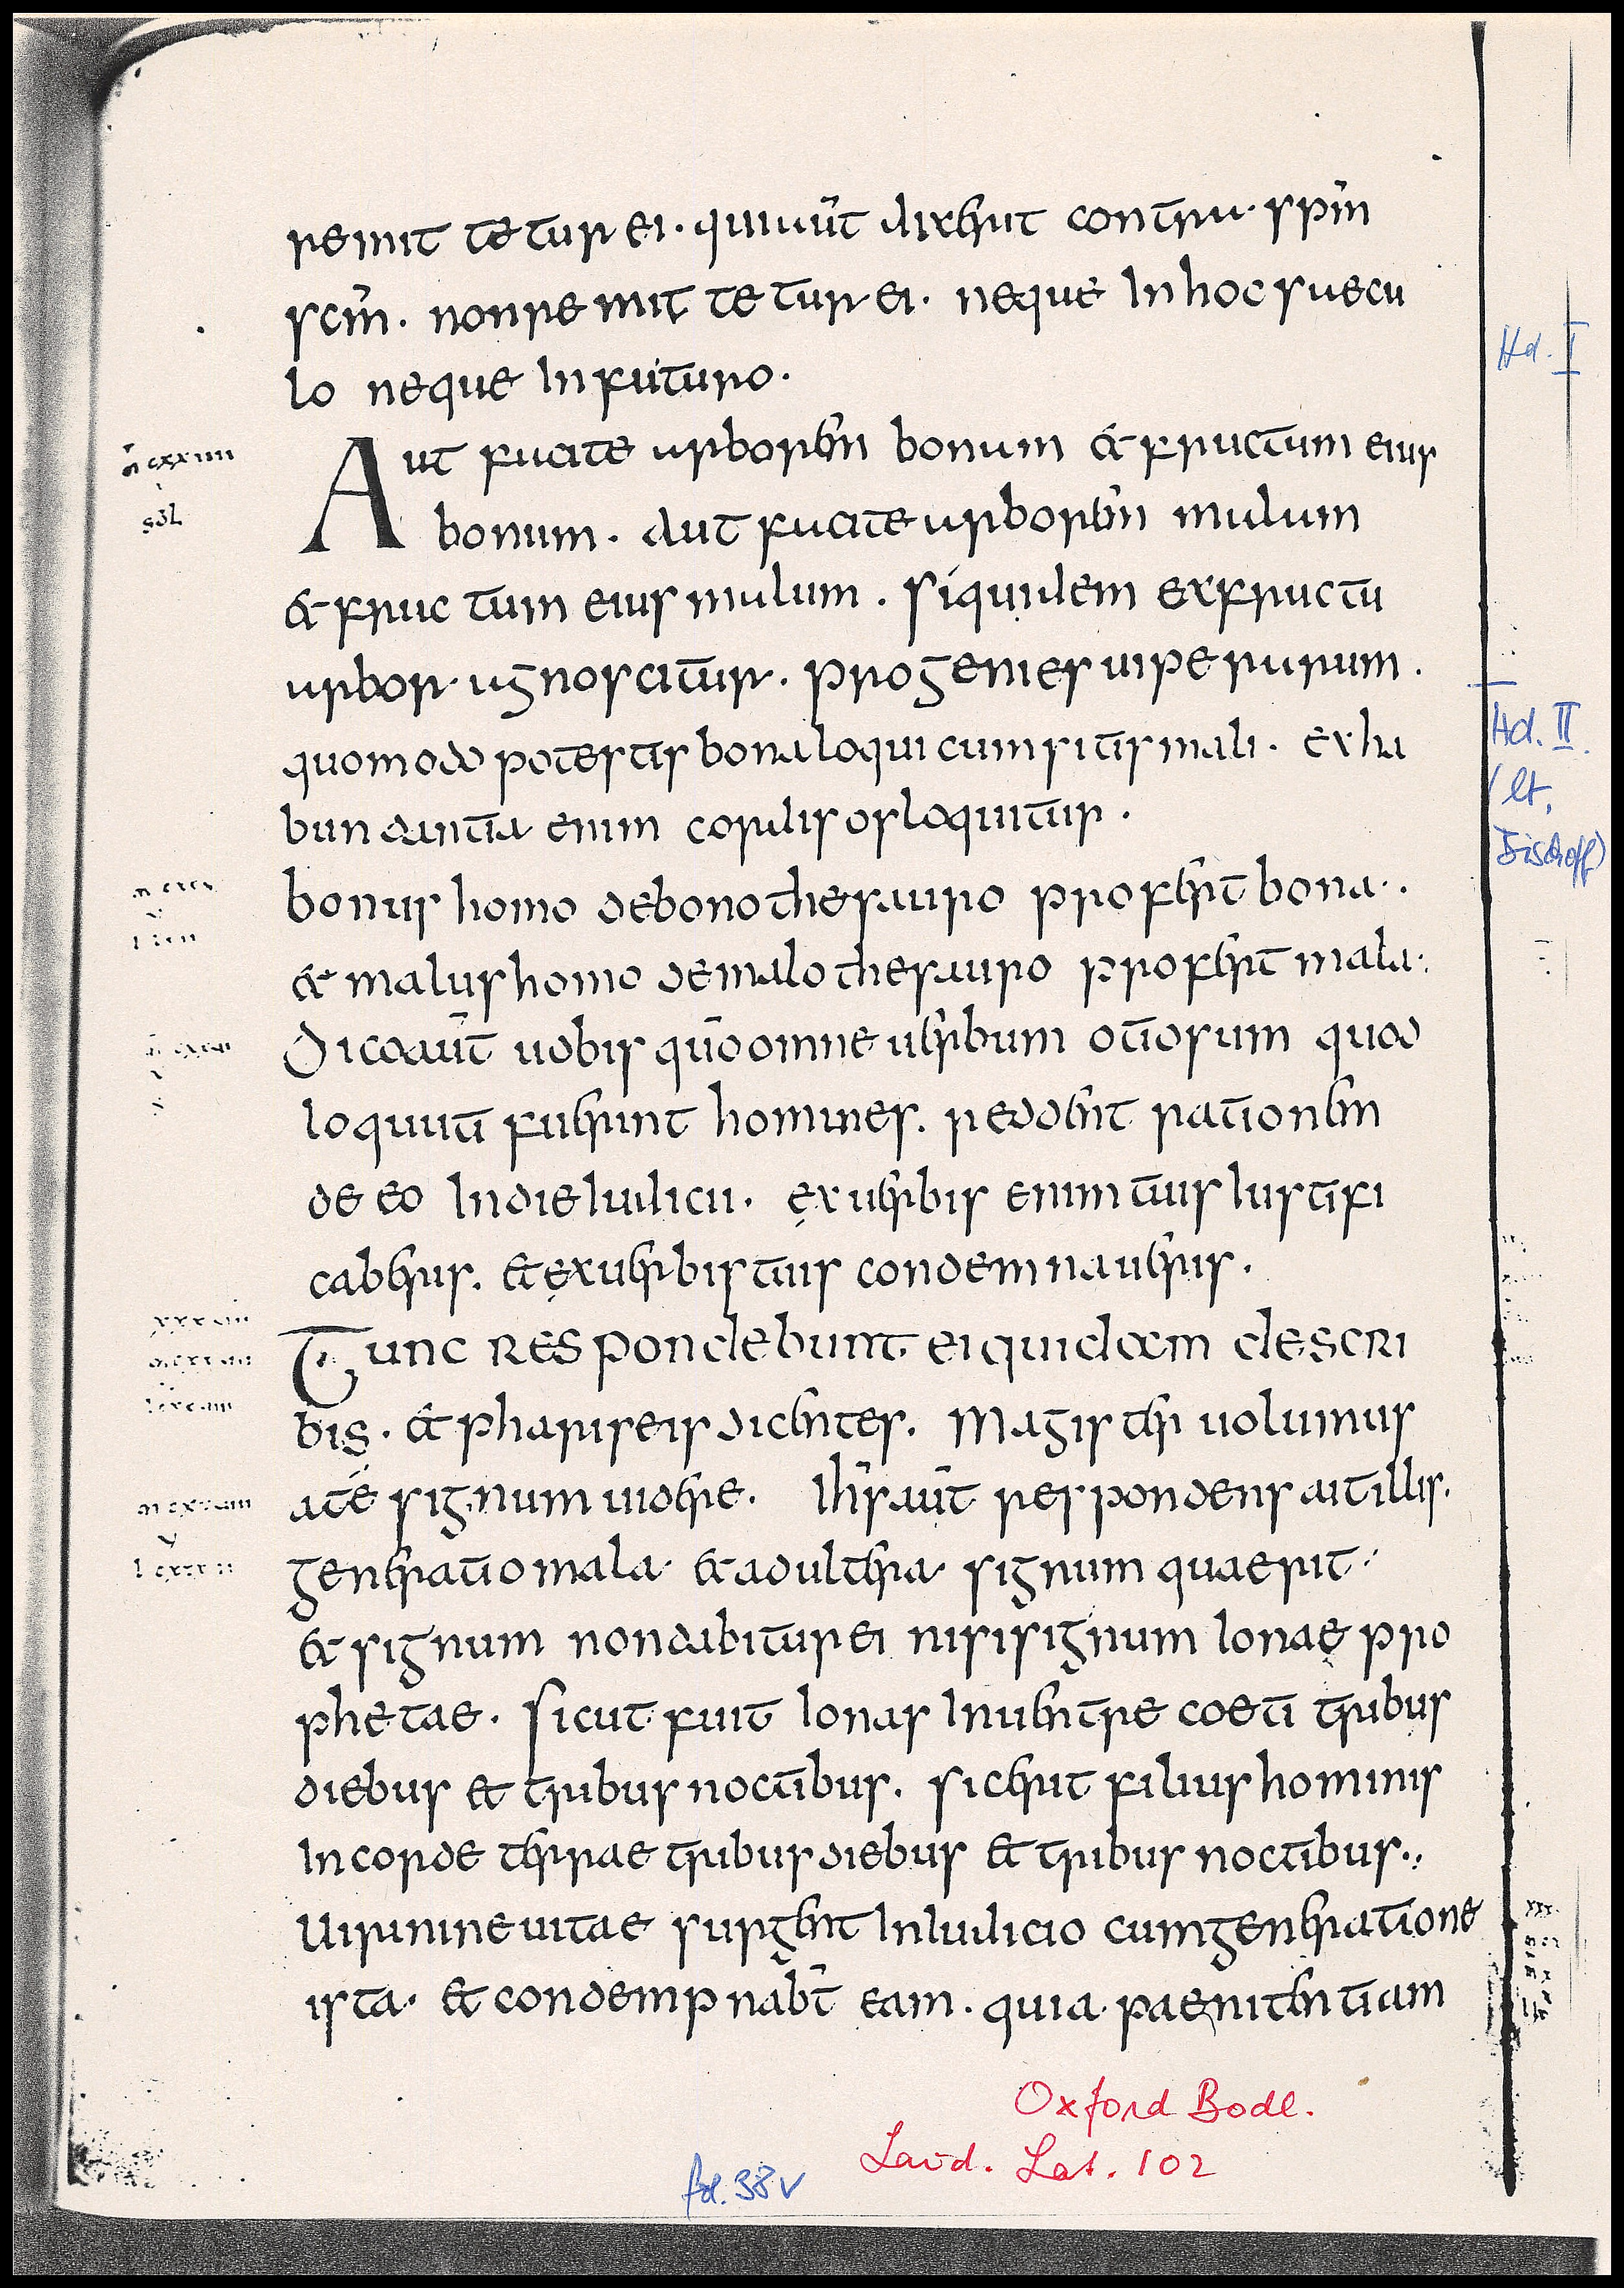 remittetur ei. qui aut̄ dixerit contra sp̄m
sc̄m. non remittetur ei. neque in hoc saecu
lo neque in futuro.
Aut facite arborem bonum & fructum eius
bonum. aut facite arborem malum
& fructum eius malum. siquidem ex fructu
arbor agnoscitur. progenies uiperarum.
quomodo potestis bona loqui cum sitis mali. ex ha
bundantia enim cordis os loquitur.
bonus homo de bono thesauro profert bona.
& malus homo de malo thesauro profert mala.
Dico aut̄ uobis qūo omne uerbum otiosum quod
loquuti fuerint homines. reddent rationem
de eo in die iudicii. ex uerbis enim tuis iustifi
caberis. et ex uerbis tuis condemnaueris.
Tunc responderunt ei quidam de scri
bis. & phariseis dicentes. Magister uolumus
a te signum uidere. ih̄s aut̄ respondens ait illis.
generatio mala & adultera signum quaerit.
& signum non dabitur ei nisi signum ionae pro
phetae. sicut fuit ionas in uentre coeti tribus
diebus et tribus noctibus. sic erit filius hominis
in corde terrae tribus diebus et tribus noctibus.
Uiri nineuitae surgent in iudicio cum generatione
ista. et condempnab̄t eam. quia paenitentiam
Hd. I
Hd. II
(lt.
Bischoff)
Oxford Bodl.
Laud. Lat. 102
fol. 38v